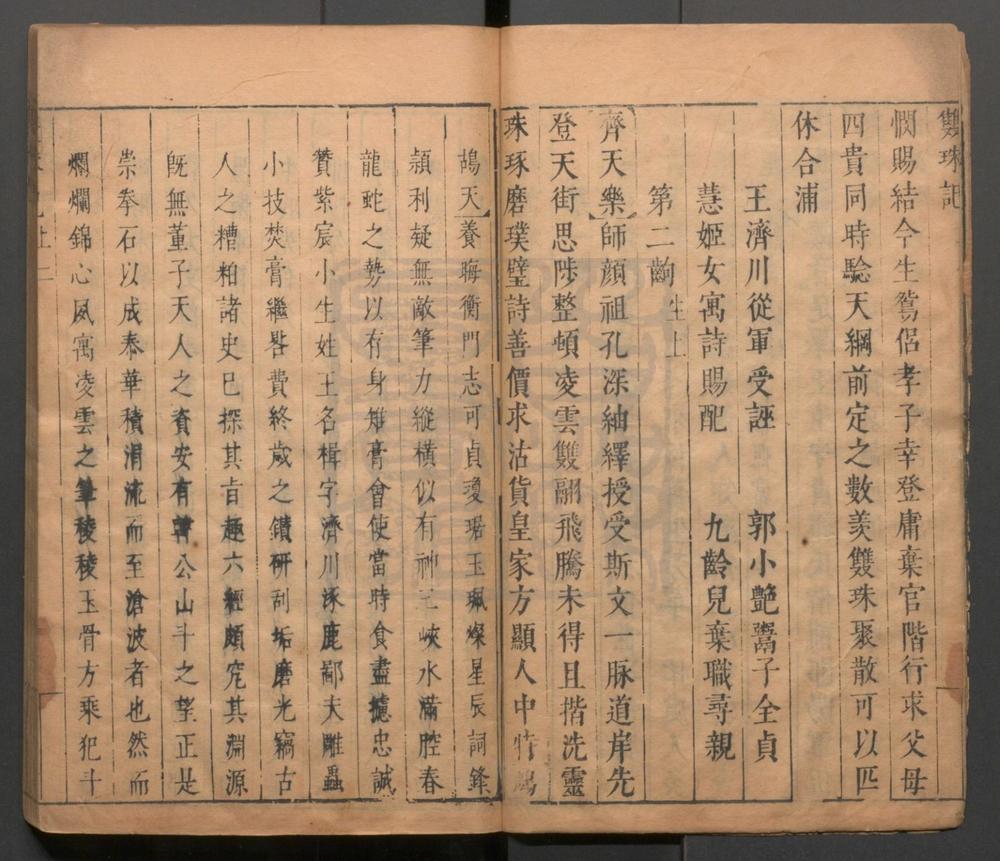 雙珠記
憫賜結今生鴛侶孝子幸登庸棄官階行求父母
四貴同時騐天綱前定之數羡雙珠聚散可以匹
休合浦
王濟川從軍受誣 郭小艶鬻子全貞
慧姬女寓詩賜配 九齡兒棄職尋親
第二齣 生上
齊天樂師顔祖孔深紬繹授受斯文一脉道岸先
登天街思陟整頓凌雲雙翮飛騰未得且揩洗靈
珠琢磨璞璧詩善價求沽貨皇家方顯人中特
鴣天養晦衡門志可貞瓊琚玉珮燦星辰詞鋒
頴利疑無敵筆力縱橫似有神三峽水滿腔春
龍蛇之勢以有身雉膏會使當時食盡攄忠誠
贊紫宸小生姓王名楫字濟川涿鹿鄙夫雕蟲
小技焚膏繼晷費終歲之鑚研刮垢磨光竊古
人之糟粕諸史已探其旨趣六經頗究其淵源
旣無董子天人之資安有韓公山斗之望正是
崇拳石以成泰華積涓流而至滄波者也然而
爛爛錦心夙寓凌雲之筆稜稜玉骨方乘犯斗